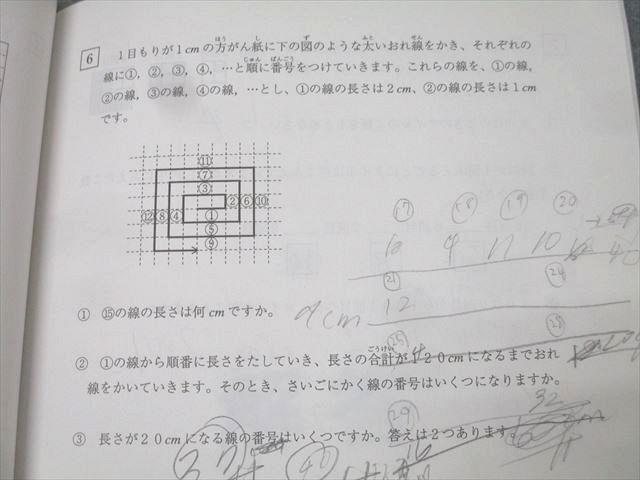 6 1目もりが1cmの方がん紙に下の図のような太いおれ線をかき、それぞれの
線に①，②，③，④，…と順に番号をつけていきます。これらの線を、①の線，
②の線，③の線，④の線，…とし、①の線の長さは2cm、②の線の長さは1cm
です。
⑪
⑦
③
② ⑥ ⑩
⑫ ⑧ ④ ①
⑤
⑨
⑰ ⑱ ⑲ ⑳
10
㉑ ㉔
12
① ⑮の線の長さは何cmですか。
cm
② ①の線から順番に長さをたしていき、長さの合計が120cmになるまでおれ
線をかいていきます。そのとき、さいごにかく線の番号はいくつになりますか。
㉙ 32
③ 長さが20cmになる線の番号はいくつですか。答えは2つあります。